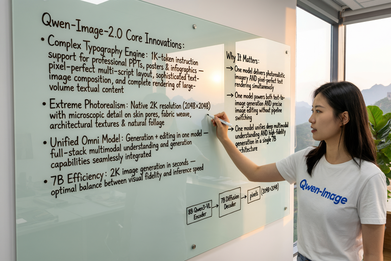 Qwen-Image-2.0 Core Innovations:
• Complex Typography Engine: 1K-token instruction
support for professional PPTs, posters & infographics —
pixel-perfect multi-script layout, sophisticated text-
image composition, and complete rendering of large-
volume textual content
• Extreme Photorealism: Native 2K resolution (2048×2048)
with microscopic detail on skin pores, fabric weave,
architectural textures & natural foliage
• Unified Omni Model: Generation + editing in one model —
full-stack multimodal understanding and generation
capabilities seamlessly integrated
• 7B Efficiency: 2K image generation in seconds —
optimal balance between visual fidelity and inference speed
Why It Matters:
→ One model delivers photorealistic
imagery AND pixel-perfect text
rendering simultaneously
→ One model powers both text-to-
image generation AND precise
image editing without pipeline
switching
→ One model unifies deep multimodal
understanding AND high fidelity
generation in a single 7B
architecture
8B Qwen3-VL
Encoder
7B Diffusion
Decoder
pixels
(2048×2048)
Qwen-Image